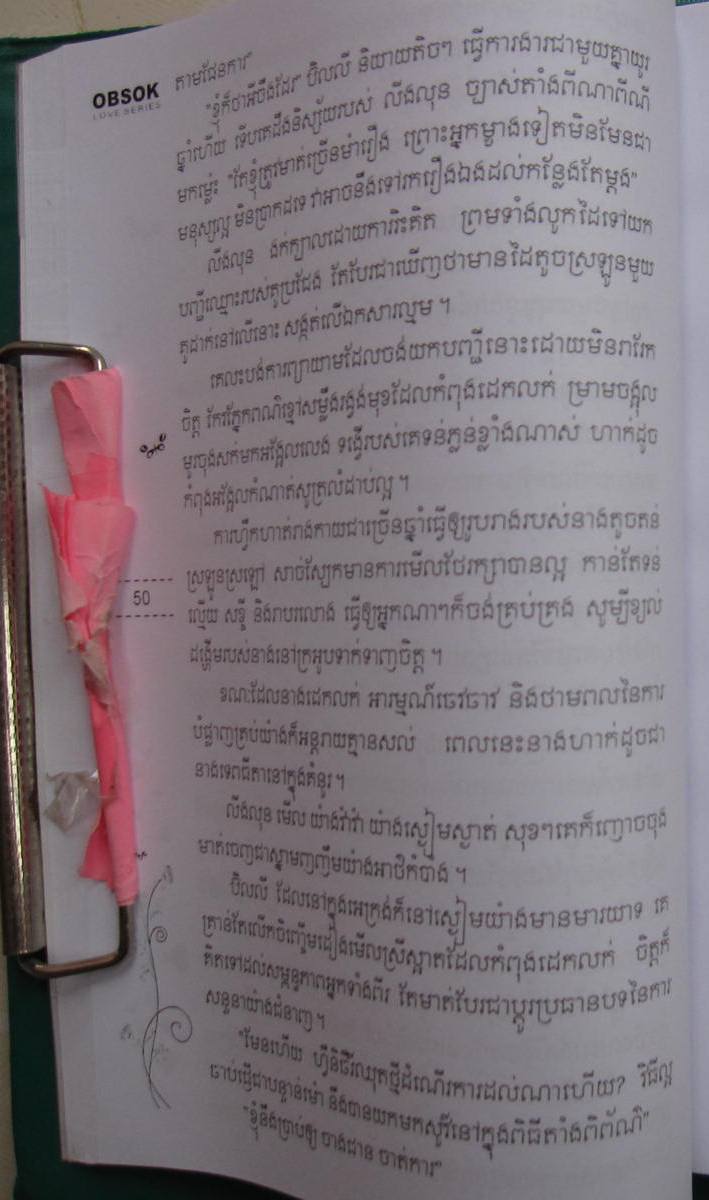 OBSOK
LOVE SERIES
តាមផែនការ"
"ខ្ញុំក៏ថាអីចឹងដែរ" ប៊ិលលី និយាយតិចៗ ធ្វើការងារជាមួយគ្នាយូរ
ឆ្នាំហើយ ទើបគេដឹងនិស្ស័យរបស់ លីងលុន ច្បាស់តាំងពីណាពីណី
មកម្ល៉េះ "តែខ្ញុំត្រូវមាត់ច្រើនម៉ារឿង ព្រោះអ្នកម្ខាងទៀតមិនមែនជា
មនុស្សល្អ មិនប្រាកដទេ វាអាចនឹងទៅរករឿងឯងដល់កន្លែងតែម្ដង"
លីងលុន ងក់ក្បាលដោយការរិះគិត ព្រមទាំងលូកដៃទៅយក
បញ្ជីឈ្មោះរបស់គូប្រជែង តែបែរជាឃើញថាមានដៃតូចស្រឡូនមួយ
គូដាក់នៅលើនោះ សង្កត់លើឯកសារល្មម ។
គេលះបង់ការព្យាយាមដែលចង់យកបញ្ជីនោះដោយមិនរារែក
ចិត្ត កែវភ្នែកពណ៌ខ្មៅសម្លឹងរង្វង់មុខដែលកំពុងដេកលក់ ម្រាមចង្អុល
មូរចុងសក់មកអង្អែលលេង ទង្វើរបស់គេទន់ភ្លន់ខ្លាំងណាស់ ហាក់ដូច
កំពុងអង្អែលកំណាត់សូត្រលំដាប់ល្អ ។
ការហ្វឹកហាត់រាងកាយជាច្រើនឆ្នាំធ្វើឲ្យរូបរាងរបស់នាងតូចតន់
ស្រឡូនស្រឡៅ សាច់ស្បែកមានការមើលថែរក្សាបានល្អ កាន់តែទន់
ល្មើយ សខ្ចី និងរាបរលោង ធ្វើឲ្យអ្នកណាៗក៏ចង់គ្រប់គ្រង សូម្បីខ្យល់
ដង្ហើមរបស់នាងនៅក្រអូបទាក់ទាញចិត្ត ។
50
ខណៈដែលនាងដេកលក់ អារម្មណ៍ឆេវឆាវ និងថាមពលនៃការ
បំផ្លាញគ្រប់យ៉ាងក៏អន្តរាយគ្មានសល់ ពេលនេះនាងហាក់ដូចជា
នាងទេពធីតានៅក្នុងគំនូរ ។
លីងលុន មើល យ៉ាងវ៉ាវ៉ា យ៉ាងស្ងៀមស្ងាត់ សុខៗគេក៏ញោចចុង
មាត់ចេញជាស្នាមញញឹមយ៉ាងអាថ៌កំបាំង ។
ប៊ិលលី ដែលនៅក្នុងអេក្រង់ក៏នៅស្ងៀមយ៉ាងមានមារយាទ គេ
គ្រាន់តែលើកចិញ្ចើមដៀងមើលស្រីស្អាតដែលកំពុងដេកលក់ ចិត្តក៏
គិតទៅដល់សម្ពន្ធភាពអ្នកទាំងពីរ តែមាត់បែរជាប្ដូរប្រធានបទនៃការ
សន្ទនាយ៉ាងជំនាញ ។
"មែនហើយ ហ្វឺនិចឺរឈុតថ្មីដំណើរការដល់ណាហើយ? វិធីល្អ
ចាប់ផ្ដើជាបន្ទាន់ម៉ោ នឹងបានយកមកសូរីនៅក្នុងពិធីតាំងពិព័ណ៌"
"ខ្ញុំនឹងប្រាប់ឲ្យ ចាងជាន ចាត់ការ"